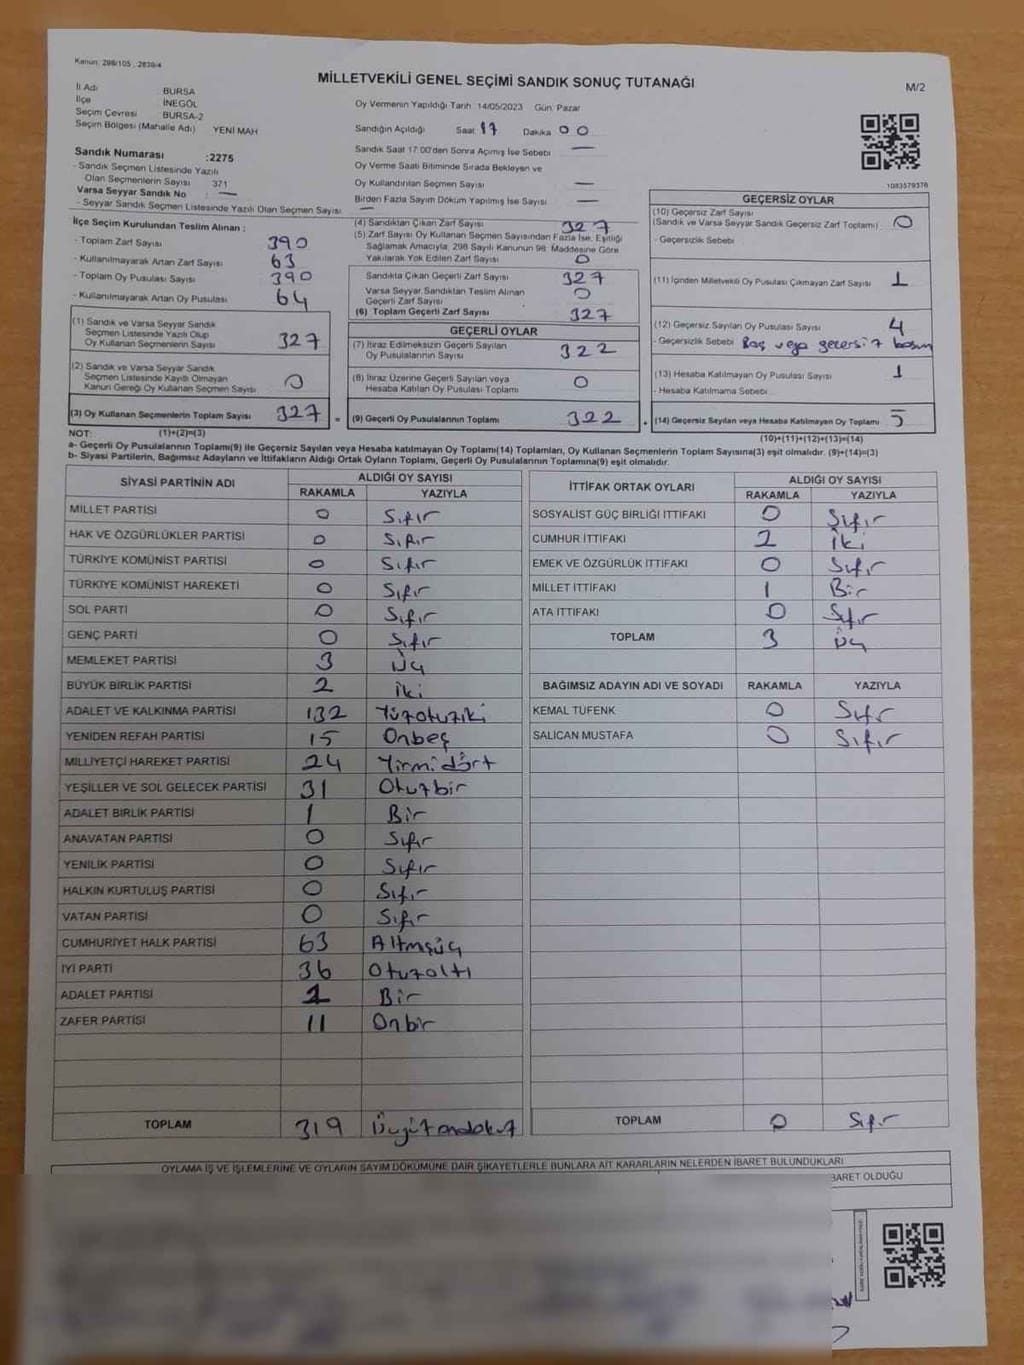 Kanun: 298/105 , 2839/4
MİLLETVEKİLİ GENEL SEÇİMİ SANDIK SONUÇ TUTANAĞI
M/2
İl Adı BURSA
İlçe İNEGÖL
Seçim Çevresi BURSA-2
Seçim Bölgesi (Mahalle Adı) YENİ MAH
Sandık Numarası :2275
- Sandık Seçmen Listesinde Yazılı
Olan Seçmenlerin Sayısı 371
Varsa Seyyar Sandık No —
- Seyyar Sandık Seçmen Listesinde Yazılı Olan Seçmen Sayısı —
Oy Vermenin Yapıldığı Tarih: 14/05/2023 Gün: Pazar
Sandığın Açıldığı Saat 17 Dakika 00
Sandık Saat 17:00'den Sonra Açımış İse Sebebi —
Oy Verme Saati Bitiminde Sırada Bekleyen ve
Oy Kullandırılan Seçmen Sayısı —
Birden Fazla Sayım Döküm Yapılmış İse Sayısı —
1083579376
İlçe Seçim Kurulundan Teslim Alınan :
- Toplam Zarf Sayısı 390
- Kullanılmayarak Artan Zarf Sayısı 63
- Toplam Oy Pusulası Sayısı 390
- Kullanılmayarak Artan Oy Pusulası 64
(1) Sandık ve Varsa Seyyar Sandık
Seçmen Listesinde Yazılı Olup
Oy Kullanan Seçmenlerin Sayısı 327
(2) Sandık ve Varsa Seyyar Sandık
Seçmen Listesinde Kayıtlı Olmayan
Kanun Gereği Oy Kullanan Seçmen Sayısı 0
(3) Oy Kullanan Seçmenlerin Toplam Sayısı 327 =
(4) Sandıktan Çıkan Zarf Sayısı 327
(5) Zarf Sayısı Oy Kullanan Seçmen Sayısından Fazla İse, Eşitliği
Sağlamak Amacıyla, 298 Sayılı Kanunun 98. Maddesine Göre
Yakılarak Yok Edilen Zarf Sayısı 0
Sandıkta Çıkan Geçerli Zarf Sayısı 327
Varsa Seyyar Sandıktan Teslim Alınan
Geçerli Zarf Sayısı 0
(6) Toplam Geçerli Zarf Sayısı 327
GEÇERLİ OYLAR
(7) İtiraz Edilmeksizin Geçerli Sayılan
Oy Pusulalarının Sayısı 322
(8) İtiraz Üzerine Geçerli Sayılan veya
Hesaba Katılan Oy Pusulası Toplamı 0
(9) Geçerli Oy Pusulalarının Toplamı 322
GEÇERSİZ OYLAR
(10) Geçersiz Zarf Sayısı
(Sandık ve Varsa Seyyar Sandık Geçersiz Zarf Toplamı) 0
- Geçersizlik Sebebi
(11) İçinden Milletvekili Oy Pusulası Çıkmayan Zarf Sayısı 1
(12) Geçersiz Sayılan Oy Pusulası Sayısı 4
- Geçersizlik Sebebi Boş veya geçersiz basım
(13) Hesaba Katılmayan Oy Pusulası Sayısı 1
- Hesaba Katılmama Sebebi
(14) Geçersiz Sayılan veya Hesaba Katılmayan Oy Toplamı 5
NOT: (1)+(2)=(3)
(10)+(11)+(12)+(13)=(14)
a- Geçerli Oy Pusulalarının Toplamı(9) ile Geçersiz Sayılan veya Hesaba katılmayan Oy Toplamı(14) Toplamları, Oy Kullanan Seçmenlerin Toplam Sayısına(3) eşit olmalıdır. (9)+(14)=(3)
b- Siyasi Partilerin, Bağımsız Adayların ve İttifakların Aldığı Ortak Oyların Toplamı, Geçerli Oy Pusulalarının Toplamına(9) eşit olmalıdır.
SİYASİ PARTİNİN ADI
ALDIĞI OY SAYISI
RAKAMLA YAZIYLA
MİLLET PARTİSİ 0 Sıfır
HAK VE ÖZGÜRLÜKLER PARTİSİ 0 Sıfır
TÜRKİYE KOMÜNİST PARTİSİ 0 Sıfır
TÜRKİYE KOMÜNİST HAREKETİ 0 Sıfır
SOL PARTİ 0 Sıfır
GENÇ PARTİ 0 Sıfır
MEMLEKET PARTİSİ 3 Üç
BÜYÜK BİRLİK PARTİSİ 2 İki
ADALET VE KALKINMA PARTİSİ 132 Yüzotuziki
YENİDEN REFAH PARTİSİ 15 Onbeş
MİLLİYETÇİ HAREKET PARTİSİ 24 Yirmidört
YEŞİLLER VE SOL GELECEK PARTİSİ 31 Otuzbir
ADALET BİRLİK PARTİSİ 1 Bir
ANAVATAN PARTİSİ 0 Sıfır
YENİLİK PARTİSİ 0 Sıfır
HALKIN KURTULUŞ PARTİSİ 0 Sıfır
VATAN PARTİSİ 0 Sıfır
CUMHURİYET HALK PARTİSİ 63 Altmışüç
İYİ PARTİ 36 Otuzaltı
ADALET PARTİSİ 1 Bir
ZAFER PARTİSİ 11 Onbir
TOPLAM 319 Üçyüzondokuz
İTTİFAK ORTAK OYLARI
ALDIĞI OY SAYISI
RAKAMLA YAZIYLA
SOSYALİST GÜÇ BİRLİĞİ İTTİFAKI 0 Sıfır
CUMHUR İTTİFAKI 2 İki
EMEK VE ÖZGÜRLÜK İTTİFAKI 0 Sıfır
MİLLET İTTİFAKI 1 Bir
ATA İTTİFAKI 0 Sıfır
TOPLAM 3 Üç
BAĞIMSIZ ADAYIN ADI VE SOYADI RAKAMLA YAZIYLA
KEMAL TÜFENK 0 Sıfır
SALİCAN MUSTAFA 0 Sıfır
TOPLAM 0 Sıfır
OYLAMA İŞ VE İŞLEMLERİNE VE OYLARIN SAYIM DÖKÜMÜNE DAİR ŞİKAYETLERLE BUNLARA AİT KARARLARIN NELERDEN İBARET BULUNDUKLARI
BARET OLDUĞU